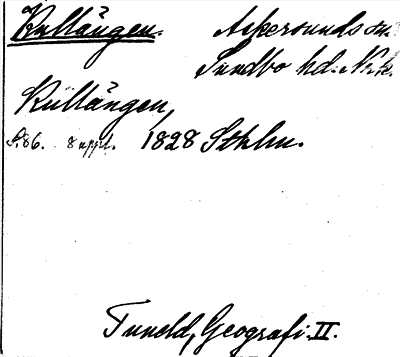 Kullängen. Askersunds sn.
Sundbo hd. Nrk.
Kullängen,
s. 86. 8 uppl. 1828 Sthlm.
Tuneld, Geografi II.